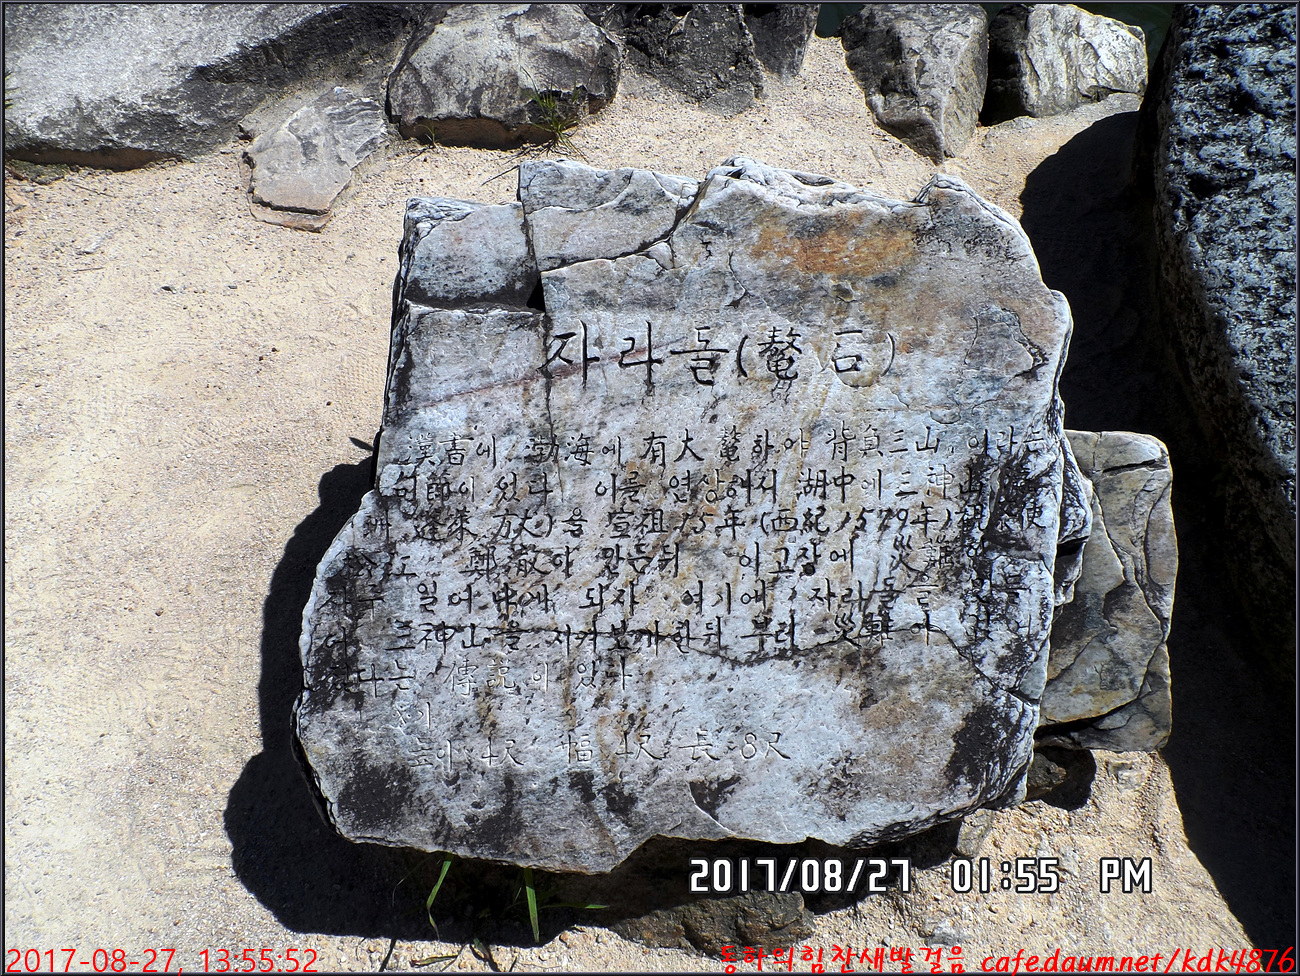 자라돌(鰲石)
漢書에 勃海에 有大鰲하야 背負三山 이라는
이 있다 이를 연상해서 湖中에 三神山
蓬萊 方丈)을 宣祖 15年(西紀 1579年)
鄭澈이 만든뒤 이고장에 災難
일어나게 되자 여기에 자라돌을
三神山을 지켜보게한뒤 부터 災難이
다는 傳說이 있다
크기
높이 4尺 幅 4尺 長 8尺
2017/08/27 01:55 PM
2017-08-27, 13:55:52
동하의힘찬새발걸음 cafe.daum.net/kdk4876